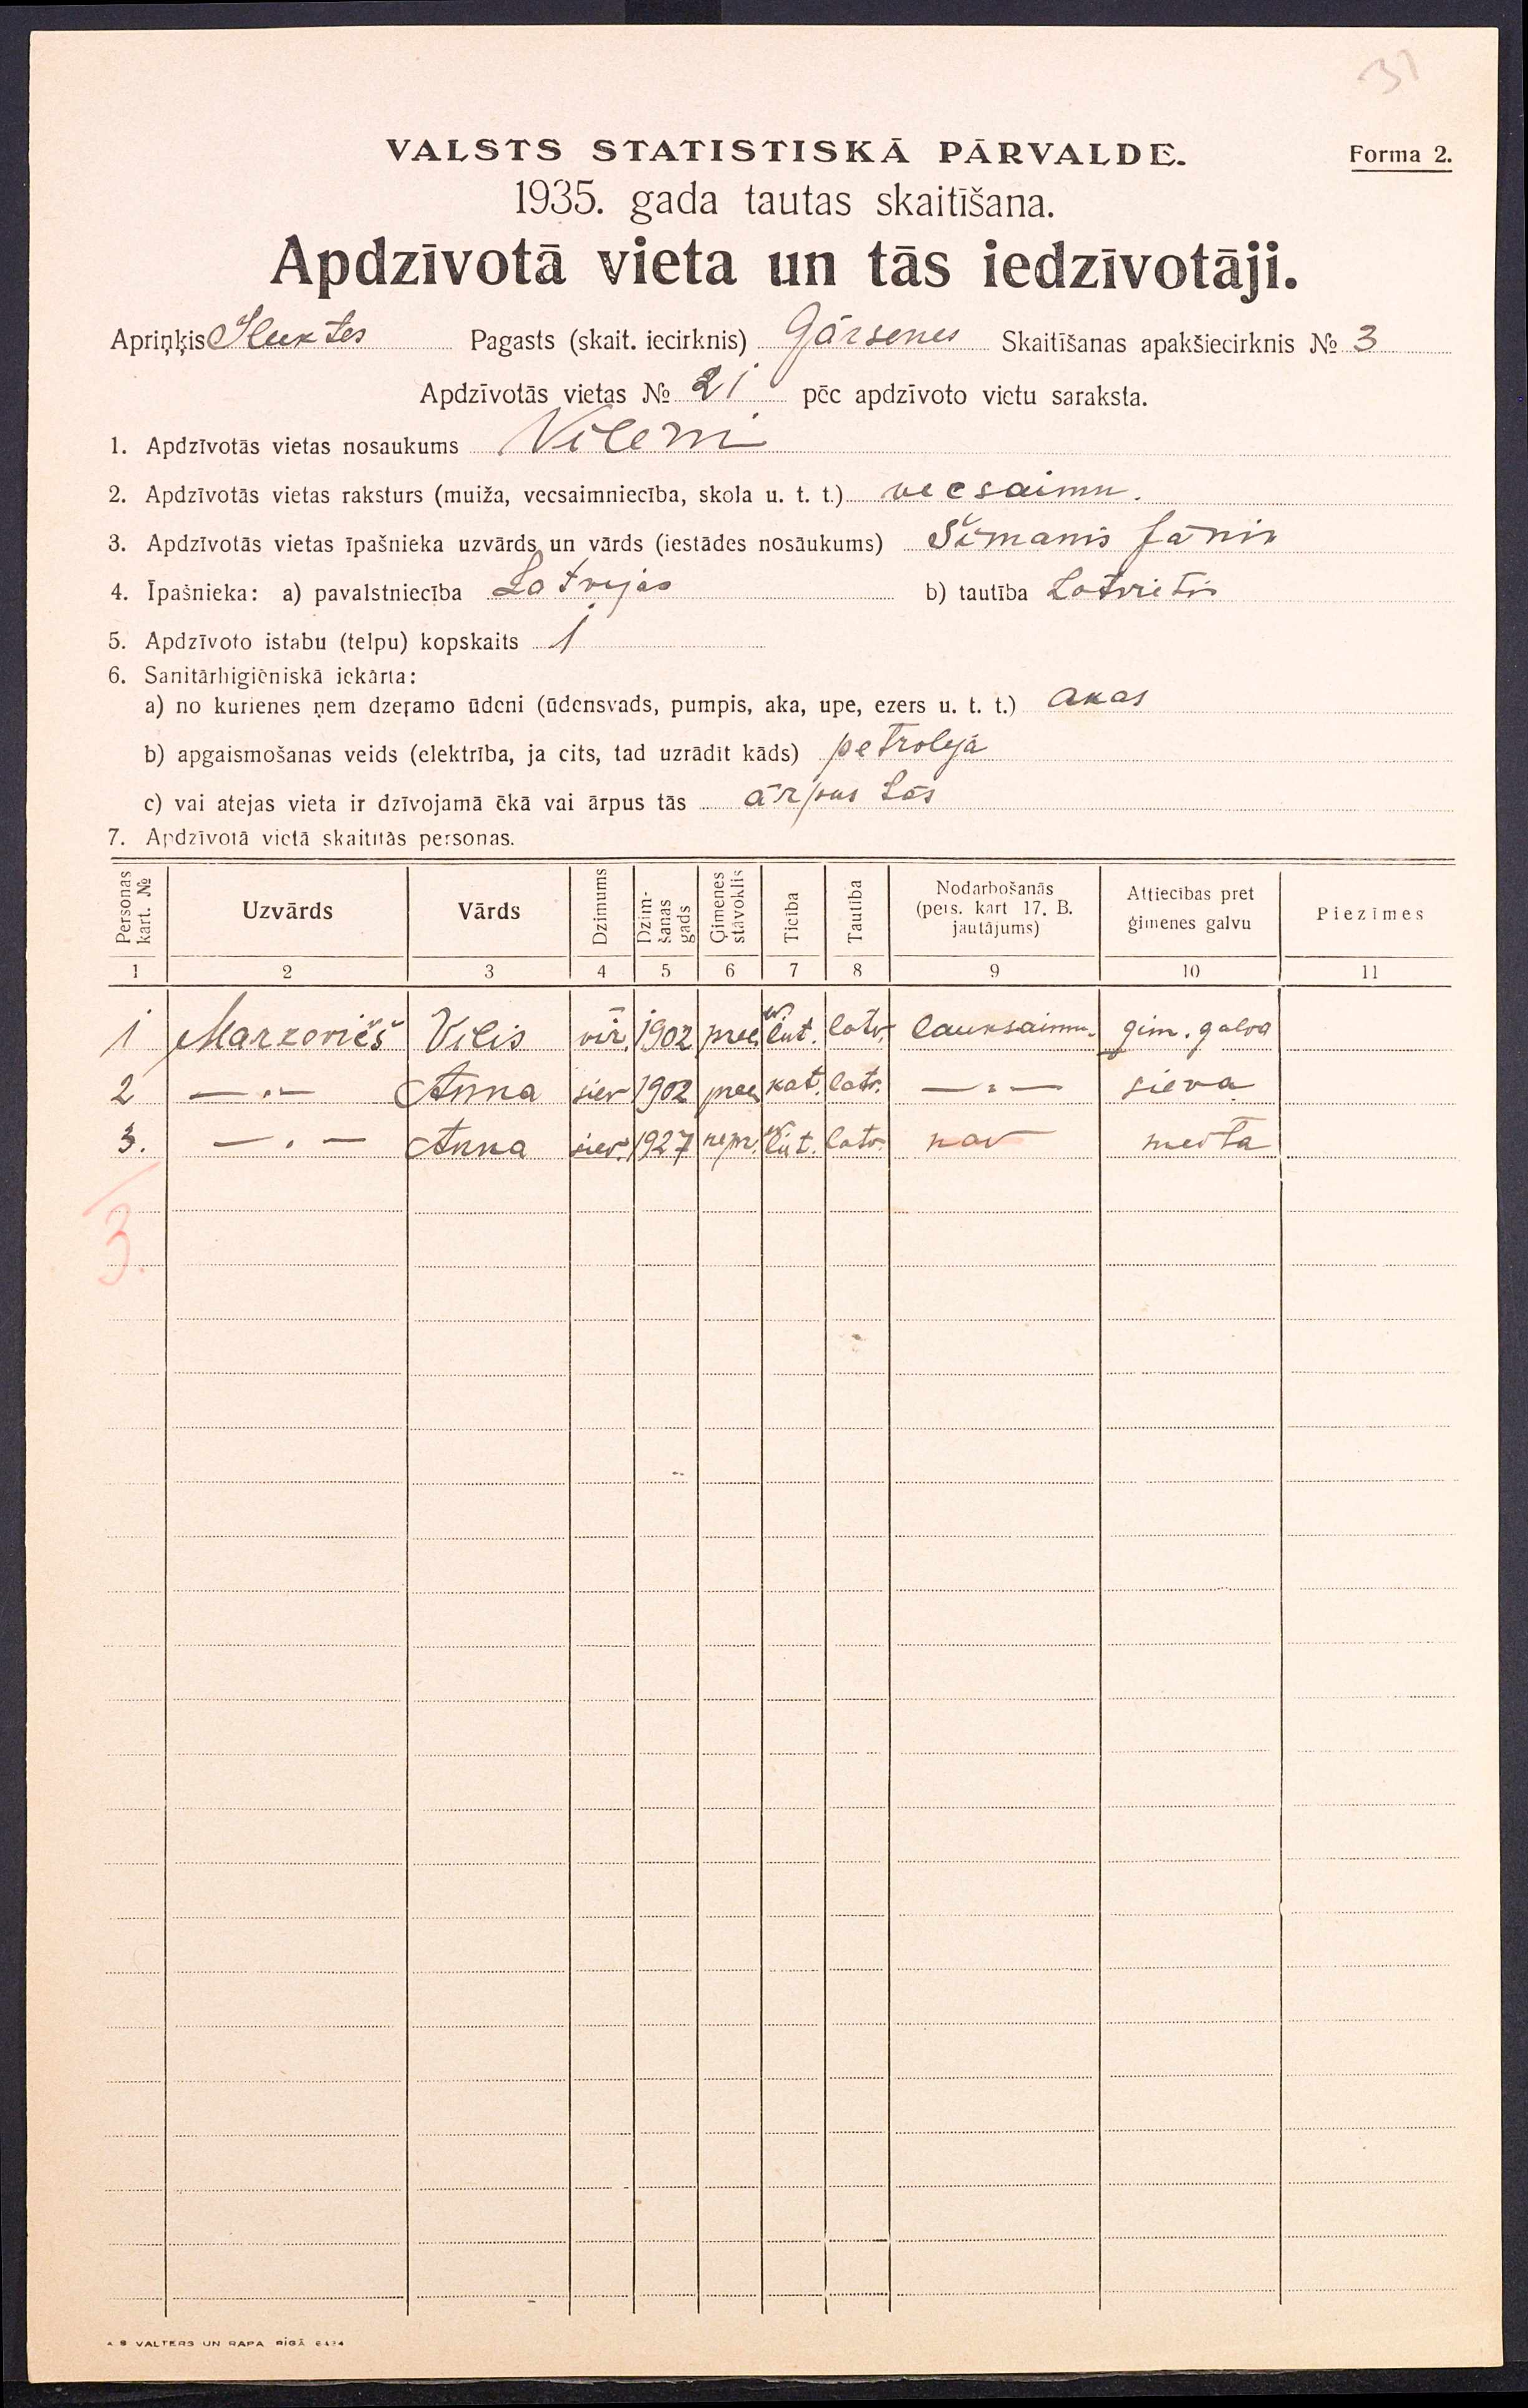 31
VALSTS STATISTISKĀ PĀRVALDE.
Forma 2.
1935. gada tautas skaitīšana.
Apdzīvotā vieta un tās iedzīvotāji.
Apriņķis Ilukstes Pagasts (skait. iecirknis) Gārsenes Skaitīšanas apakšiecirknis № 3
Apdzīvotās vietas № 21 pēc apdzīvoto vietu saraksta.
1. Apdzīvotās vietas nosaukums
2. Apdzīvotās vietas raksturs (muiža, vecsaimniecība, skola u. t. t.) vecsaimn.
3. Apdzīvotās vietas īpašnieka uzvārds un vārds (iestādes nosaukums) Sīmanis Jānis
4. Īpašnieka: a) pavalstniecība Latvijas b) tautība Latvietis
5. Apdzīvoto istabu (telpu) kopskaits 1
6. Sanitārhigiēniskā iekārta:
a) no kurienes ņem dzeŗamo ūdeni (ūdensvads, pumpis, aka, upe, ezers u. t. t.) akas
b) apgaismošanas veids (elektrība, ja cits, tad uzrādīt kāds) petroleja
c) vai atejas vieta ir dzīvojamā ēkā vai ārpus tās ārpus tās
7. Apdzīvotā vietā skaitītās personas.
Personas kart. № Uzvārds Vārds Dzimums Dzimšanas gads Ģimenes stāvoklis Ticība Tautība Nodarbošanās (pers. kart 17. B. jautājums) Attiecības pret ģimenes galvu Piezīmes
1 2 3 4 5 6 7 8 9 10 11
1 Markovičs Vilis vīr. 1902 prec. ev. lut. latv. lauksaimn. ģim. galva
2 — „ — Anna siev 1902 prec kat. latv. — „ — sieva
3. — „ — Anna siev. 1927 nepr. ev. lut. latv. nav meita
3.
A/S VALTERS UN RAPA RĪGĀ